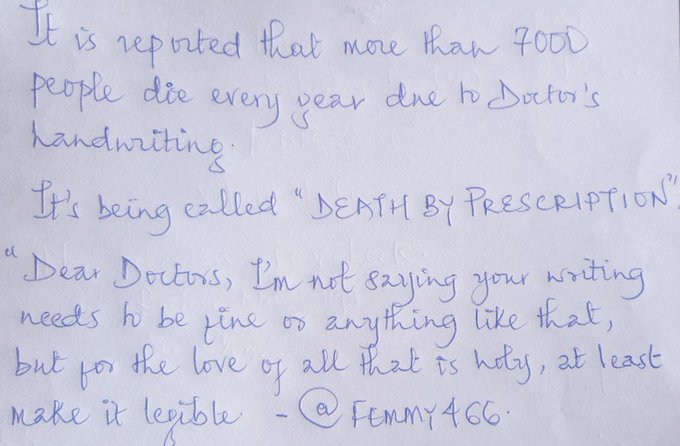 It is reported that more than 7000
people die every year due to Doctor's
handwriting.
It's being called "DEATH BY PRESCRIPTION".
"Dear Doctors, I'm not saying your writing
needs to be fine or anything like that,
but for the love of all that is holy, at least
make it legible. - @FEMMY466.